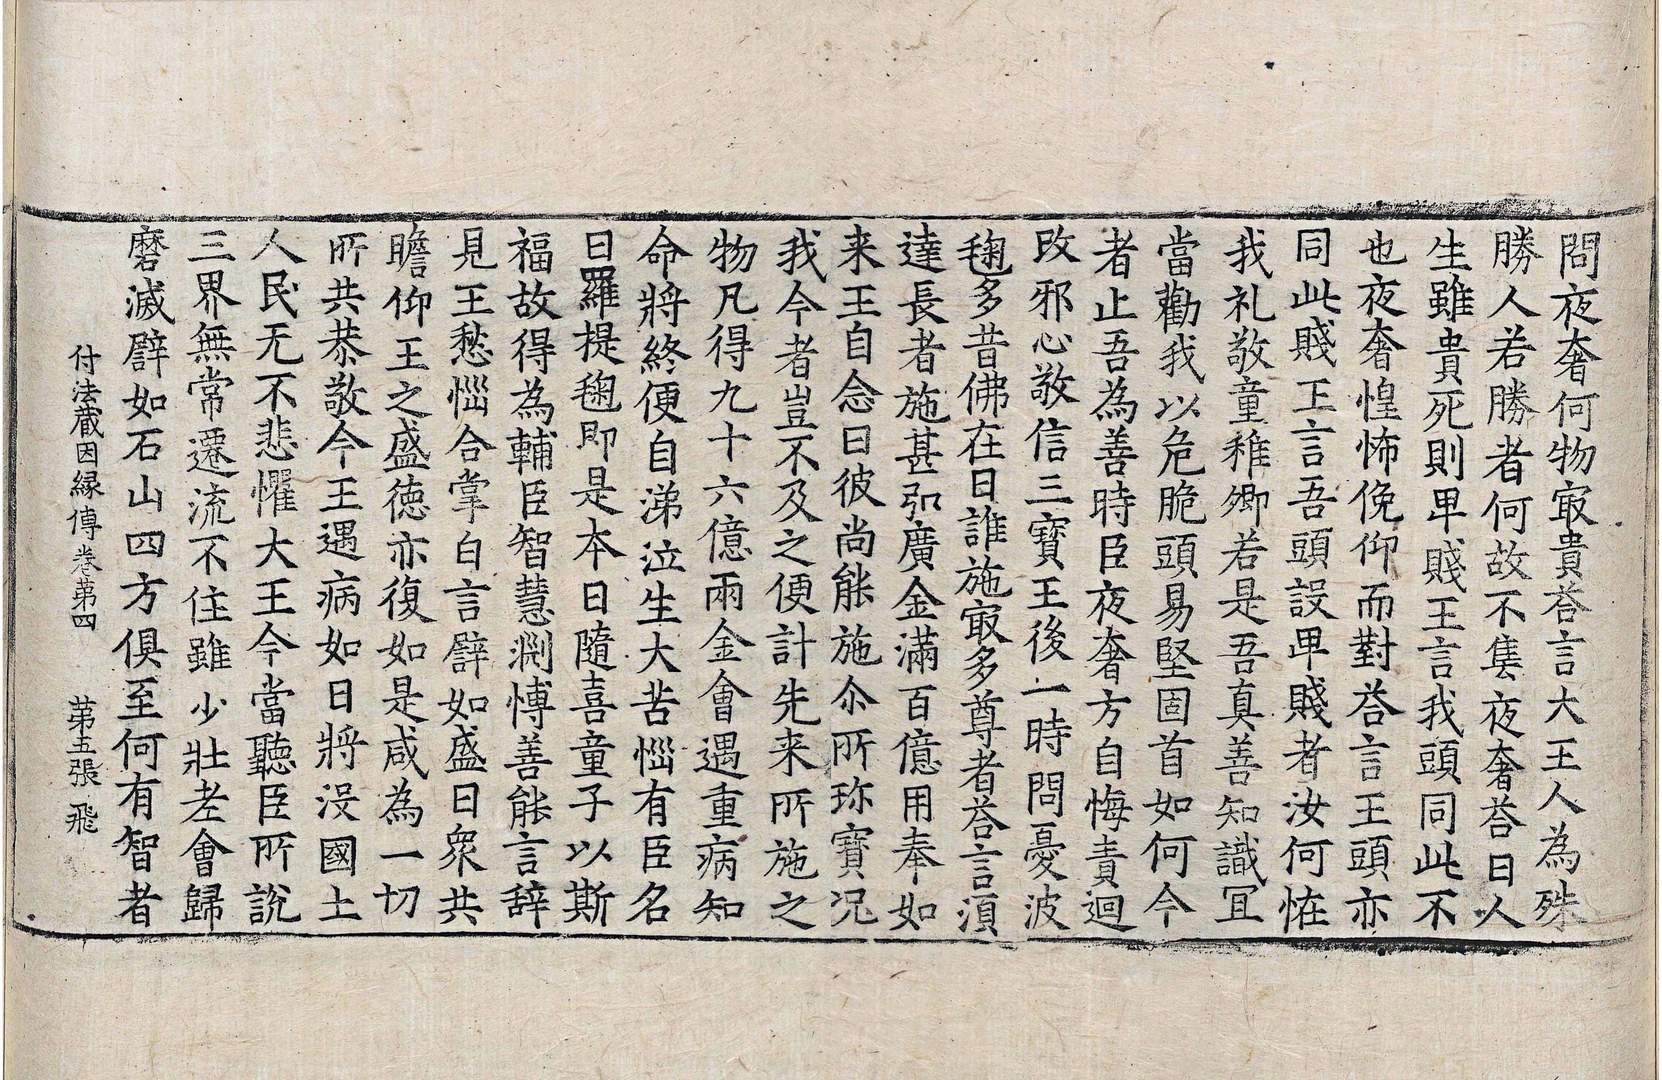 問夜奢何物冣貴荅言大王人為殊
勝人若勝者何故不集夜奢荅曰人
生雖貴死則卑賤王言我頭同此不
也夜奢惶怖俛仰而對荅言王頭亦
同此賤王言吾頭設卑賤者汝何恠
我礼敬童稚卿若是吾真善知識冝
當勸我以危脆頭易堅固首如何今
者止吾為善時臣夜奢方自悔責迴
改邪心敬信三寶王後一時問憂波
毱多昔佛在日誰施冣多尊者荅言湏
達長者施甚弘廣金滿百億用奉如
来王自念曰彼尚能施尒所珎寶况
我今者豈不及之便計先来所施之
物凡得九十六億兩金會遇重病知
命將終便自涕泣生大苦惱有臣名
曰羅提毱即是本日隨喜童子以斯
福故得為輔臣智慧渊愽善能言辞
見王愁惱合掌白言譬如盛日衆共
瞻仰王之盛德亦復如是咸為一切
所共恭敬今王遇病如日將没國土
人民无不悲懼大王今當聽臣所說
三界無常遷流不住雖少壯老會歸
磨滅譬如石山四方俱至何有智者
付法藏因緣傳卷第四 第五張 飛